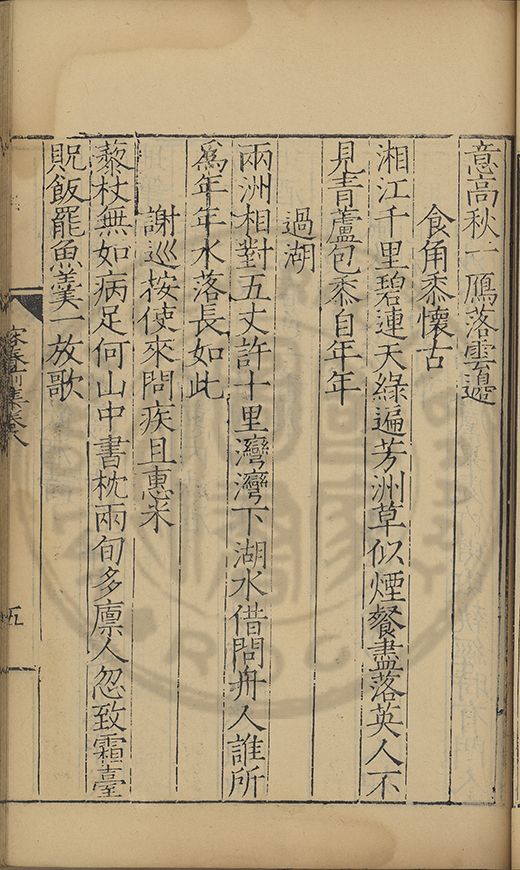 意高秋一鴈落雲邉
食角黍懷古
湘江千里碧連天綠遍芳洲草似煙餐盡落英人不
見青蘆包黍自年年
過湖
兩洲相對五丈許十里灣灣下湖水借問舟人誰所
爲年年水落長如此
謝巡按使來問疾且惠米
藜杖無如病足何山中書枕兩旬多廪人忽致霜臺
貺飯罷魚羹一放歌
集卷八
五